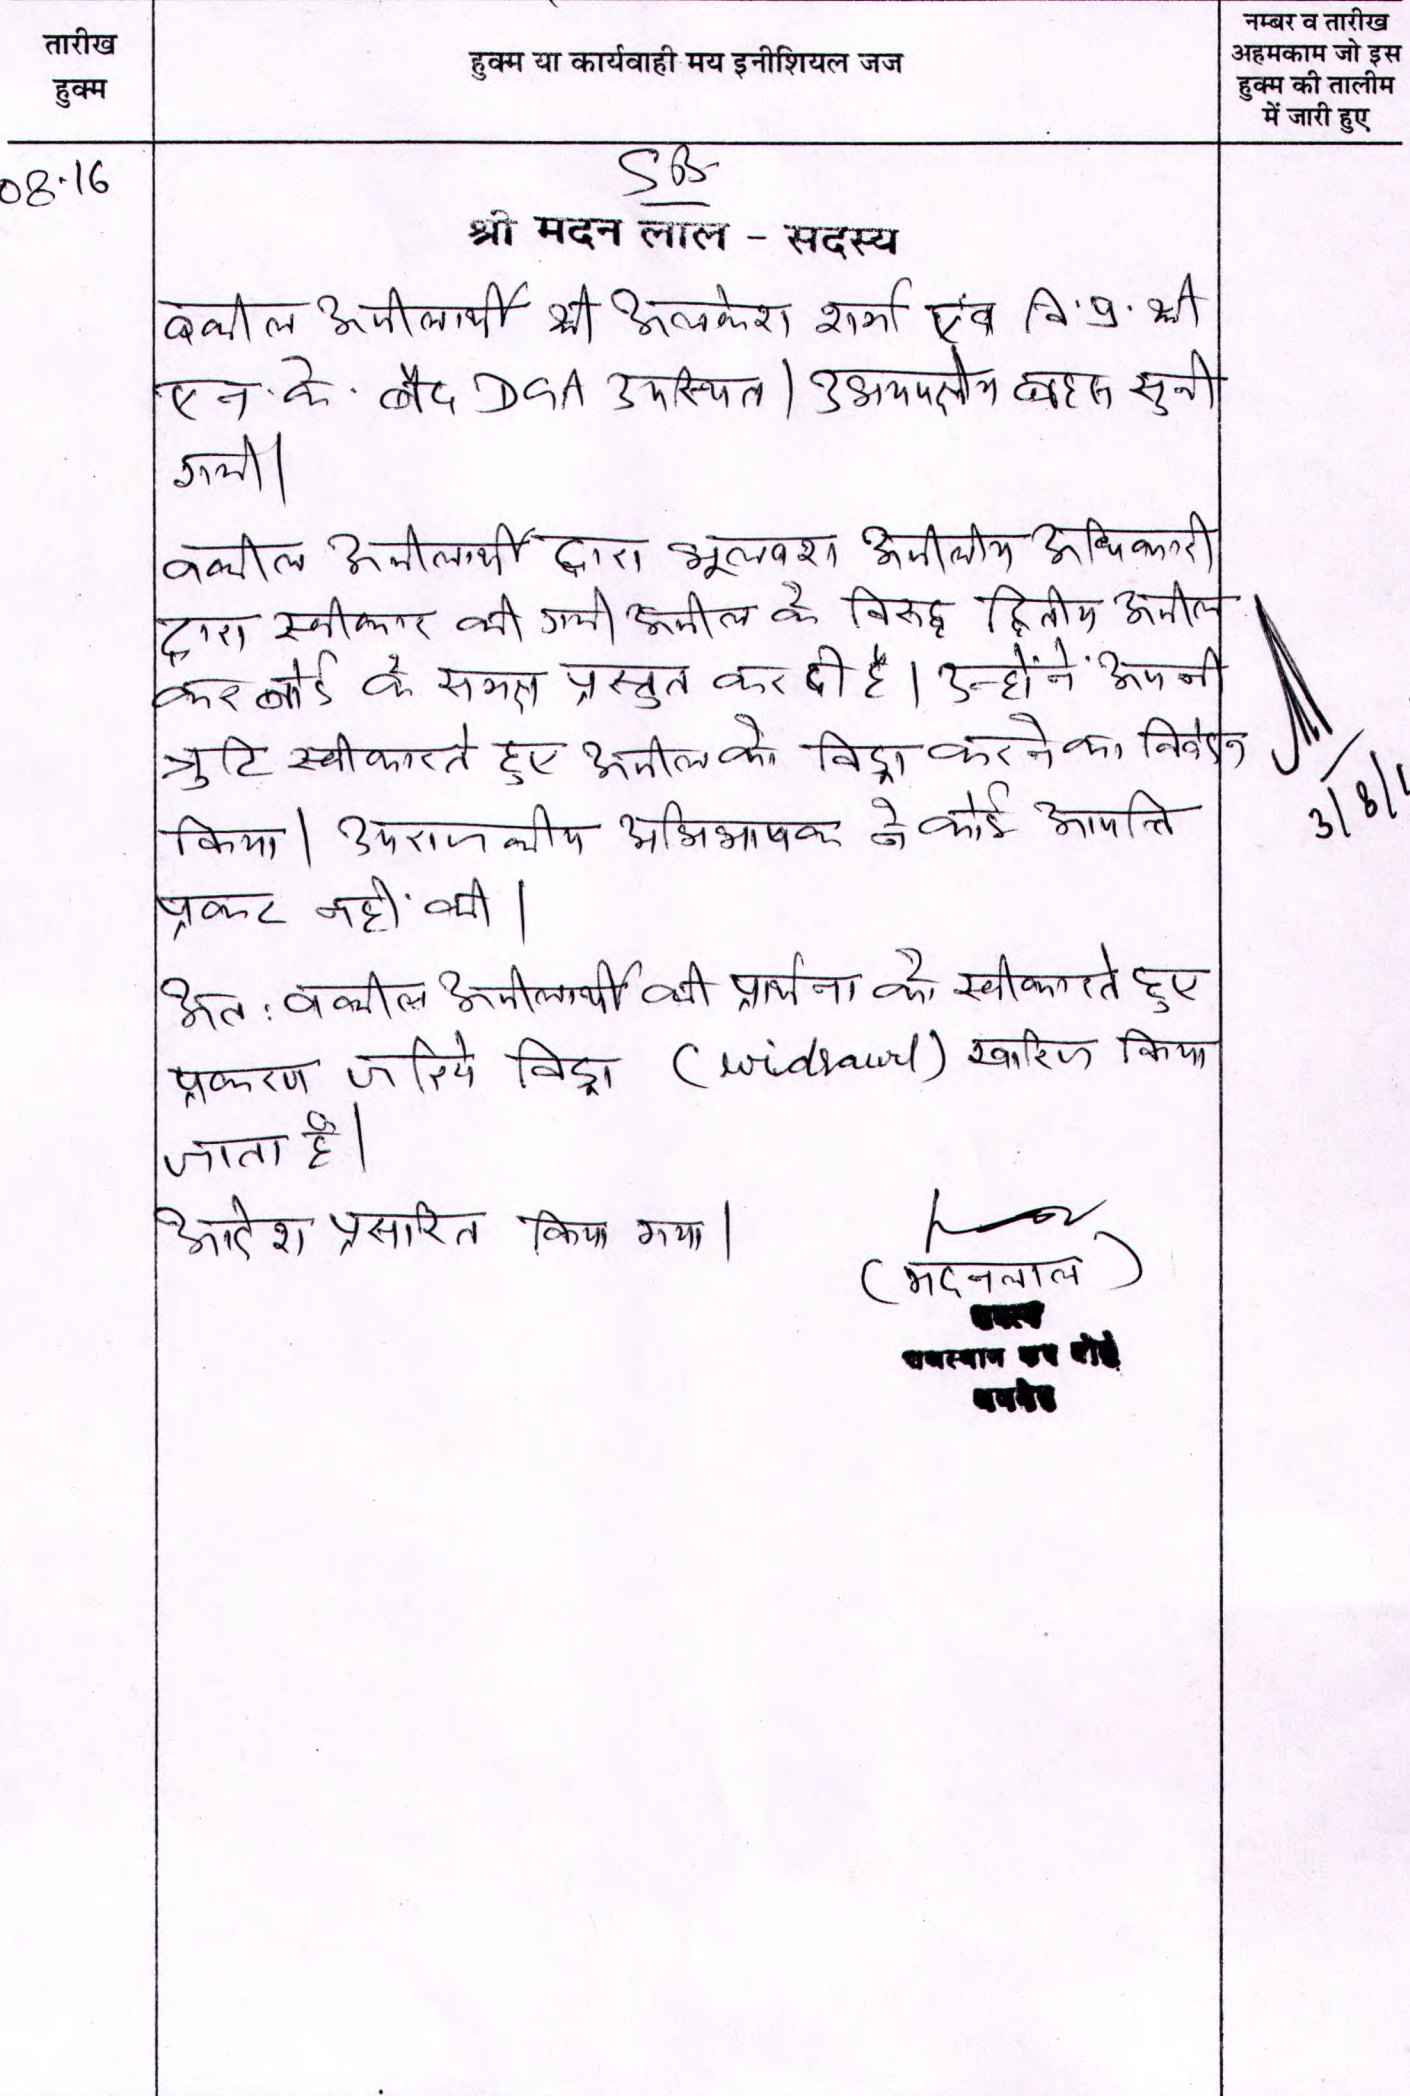 तारीख
हुक्म
हुक्म या कार्यवाही मय इनीशियल जज
नम्बर व तारीख
अहमकाम जो इस
हुक्म की तालीम
में जारी हुए
08.16
SB
श्री मदन लाल - सदस्य
वकील अपीलार्थी श्री अलकेश शर्मा एंव वि.प्र. श्री
एन.के. बैद DGA उपस्थित। उभयपक्षीय बहस सुनी
गयी।
वकील अपीलार्थी द्वारा भूलवश अपीलीय अधिकारी
द्वारा स्वीकार की गयी अपील के विरुद्ध द्वितीय अपील
कर बोर्ड के समक्ष प्रस्तुत कर दी है। उन्होंने अपनी
त्रुटि स्वीकारते हुए अपील को विड्रा करने का निवेदन
किया। उपराजकीय अभिभाषक ने कोई आपत्ति
प्रकट नहीं की।
अत: वकील अपीलार्थी की प्रार्थना को स्वीकारते हुए
प्रकरण जरिये विड्रा (widrawl) खारिज किया
जाता है।
आदेश प्रसारित किया गया।
3/8/1
(मदनलाल)
सदस्य
राजस्थान कर बोर्ड
अजमेर